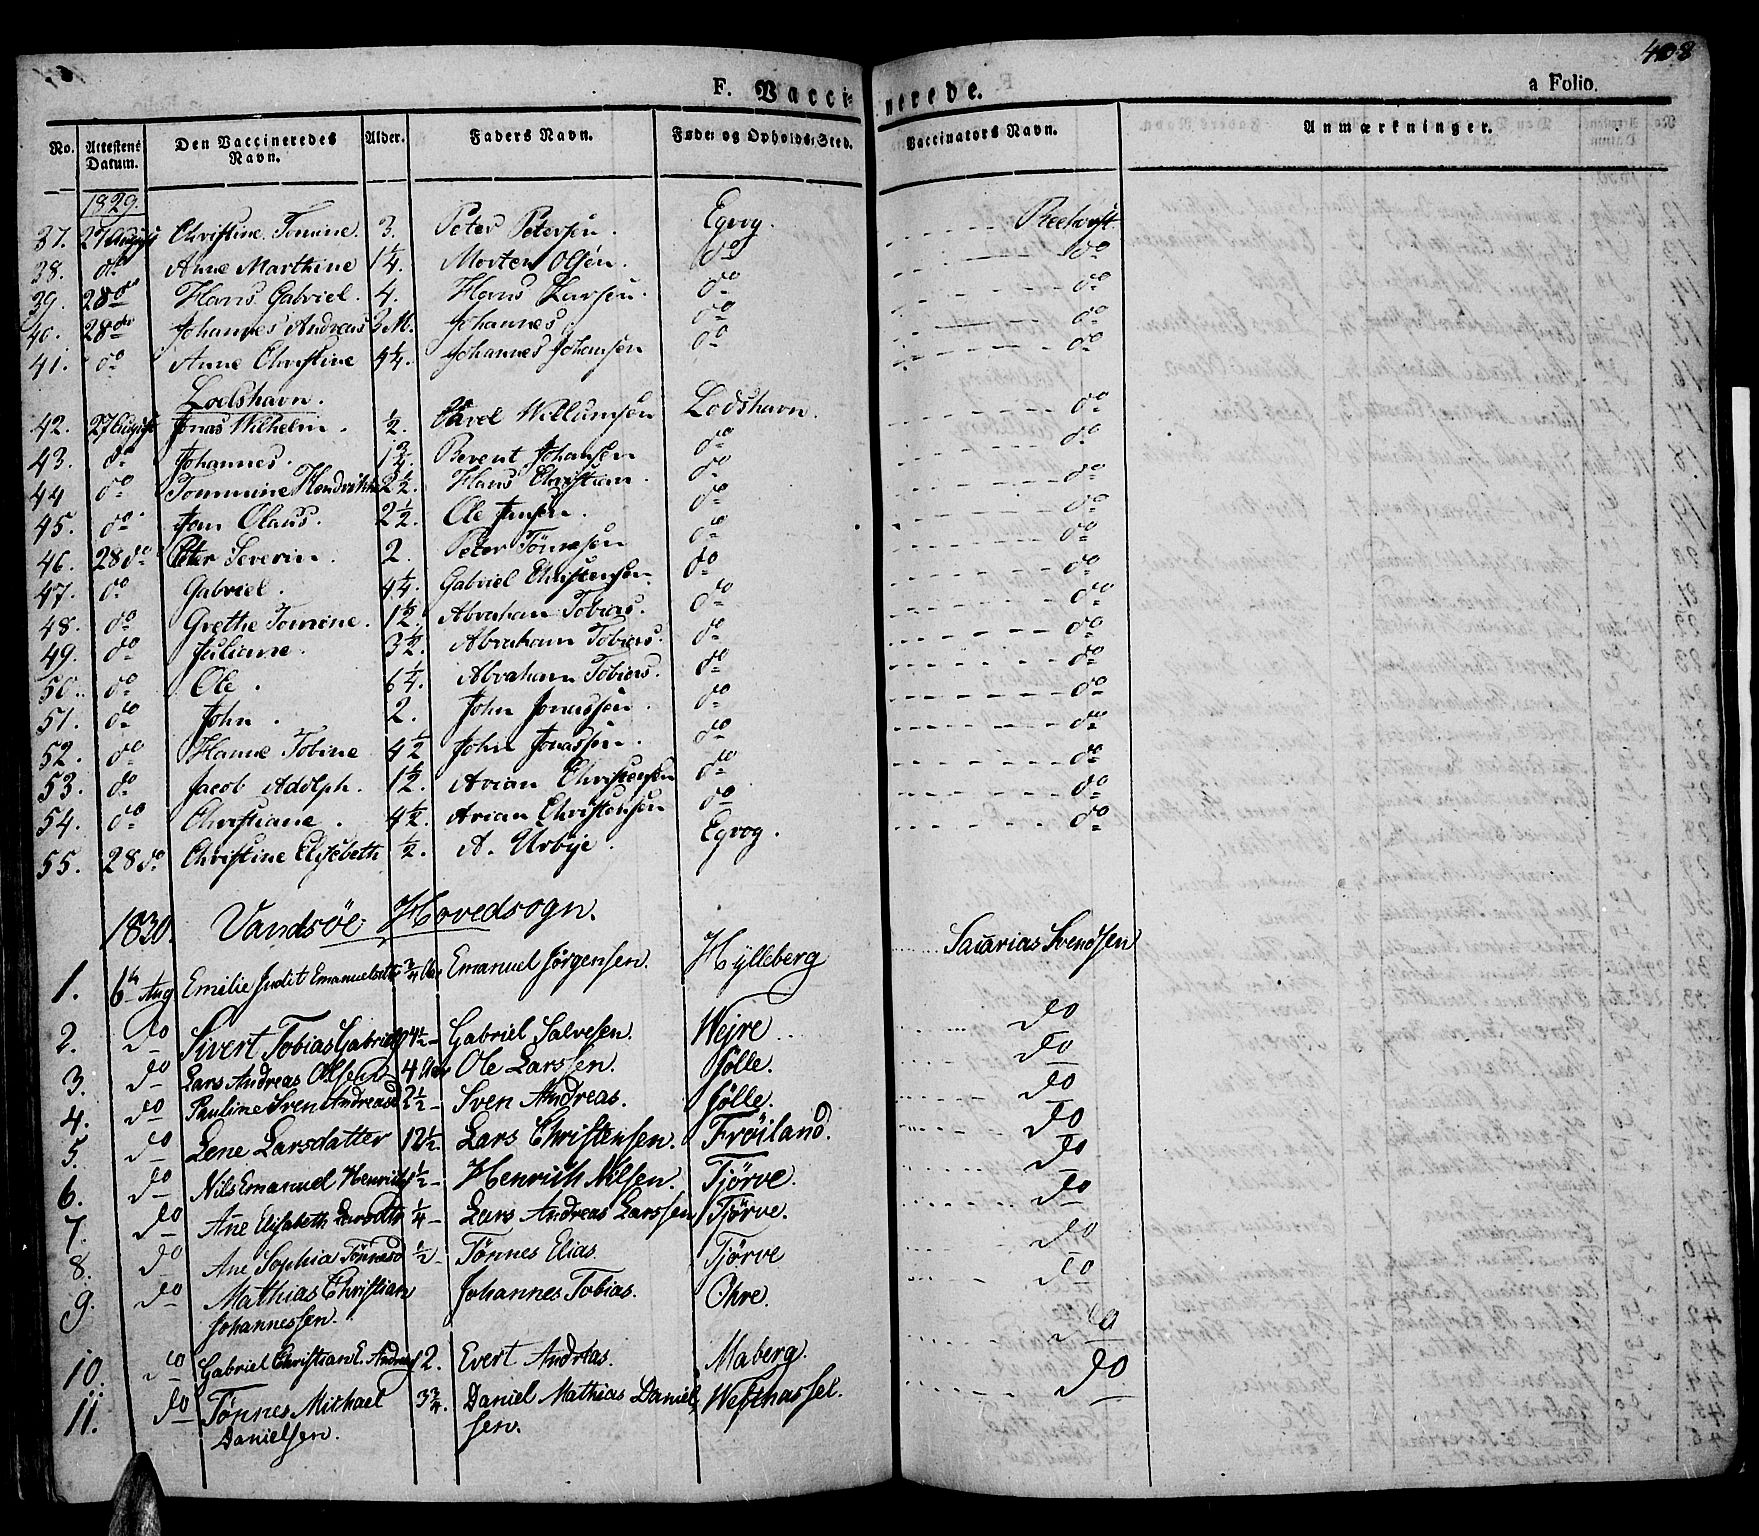 408
F. Vaccinerede.
a Folio.
No. Attestens Datum. Den Vaccineredes Navn. Alder. Faders Navn. Føde- og Opholds-Sted. Vaccinators Navn. Anmærkninger.
1829.
37. 27 August Christine Tomine. 3. Peter Petersen. Egvog.
38. do Anne Marthine 1¼. Morten Olsen. do do
39. 28 do Hans Gabriel. 4. Hans Larsen. do do
40. 28 do Johannes Andreas 3 M. Johannes do do
41. do Anne Christine 4¼. Johannes Johansen do do
Lodshavn.
42. 27 August Jonas Wilhelm. ½. Willumsen Lodshavn. do
43. do Johannes. 1¾. Berent Johansen do do
44 do Tommine Hendrikke 2½. Hans Christian. do do
45. do Jom Olaus. 2½. Ole Jensen. do do
46. 28 do Peter Severin. 2. Peter Tönnesen do do
47. do Gabriel. 4¼. Gabriel Christensen. do do
48. do Grethe Tomine. 1½. Abraham Tobias. do do
49. do Juliane. 3½. Abraham Tobias. do do
50. do Ole. 6¼. Abraham Tobias. do do
51. do John. 2. John Jonassen. do do
52. do Hanne Tobine 4½ John Jonassen. do do
53. do Jacob Adolph. 1½. Arian Christensen do do
54. do Christiane. 4½. Arian Christensen do do
55. 28 do Christine Elisebeth ½. A. Urbye. Egvog.
1830. Vandsøe Hovedsogn.
1. 6th Aug Emilie Judit Emanuelsdtr ¾ Aar Emanuel Jørgensen. Hÿlleberg Sacarias Svendsen
2. do Sivert Tobias Gabriels 4½ Gabriel Salvesen. Wejre do
3. do Lars Andreas Olsen 4 Aar Ole Larssen. Jølle. do
4. do Pauline Sven Andreasd 2½ Sven Andreas. Jølle. do
5. do Lene Larsdatter 12½ Lars Christensen. Frøiland. do
6. do Nils Emanuel Henrichs ½ Henrich Nilsen. Tjørve. do
7. do Ane Elisabeth Larsdtr ¼ Lars Andreas Larssen Tjørve. do
8. do Ane Sophia Tønnesd ½ Tønnes Elias. Tjørve do
9. do Mathias Christian Johannes Tobias. Ohre. do
Johannessen.
10. do Gabriel Christian E. Andreas 12. Evert Andreas. Maberg. do
11. do Tønnes Michael 3¾. Daniel Mathias Daniel- Westhassel. do
Danielsen. sen.